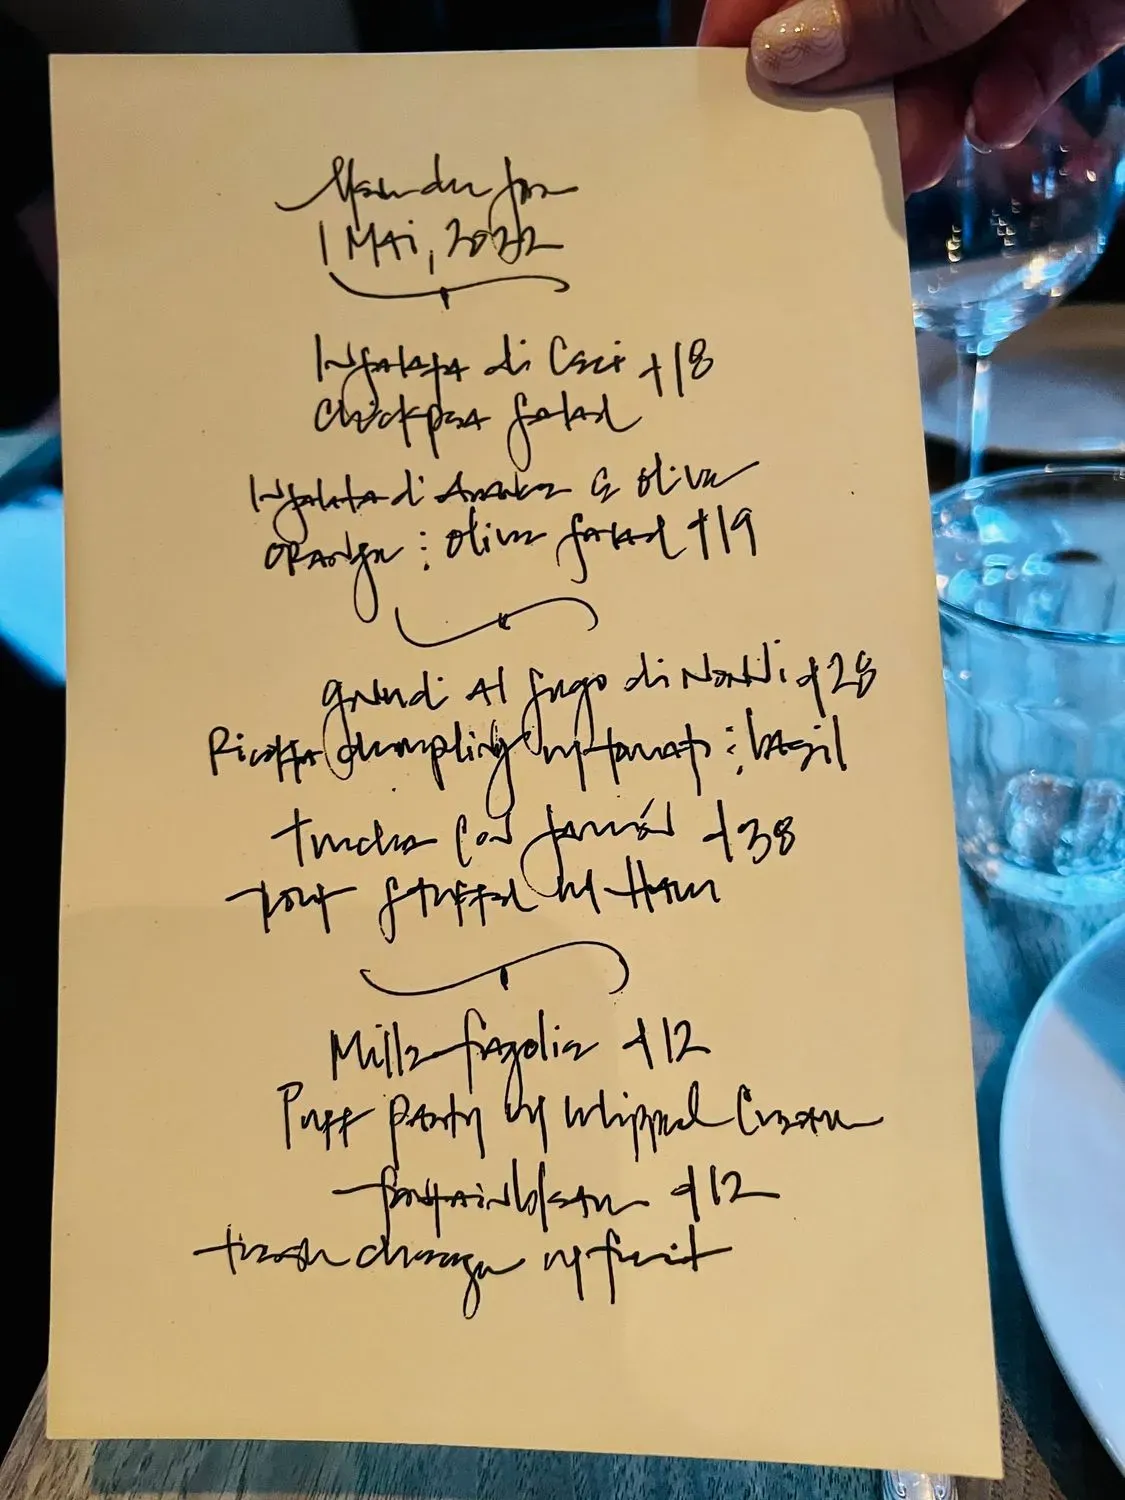 1 Mai, 2022
Insalata di Ceci +18
Chickpea Salad
Insalata di Arance e Olive
Orange & Olive Salad +19
Gnudi al Sugo di Nonni +28
Ricotta Dumplings w/ Tomato & Basil
Trucha con Jamón +38
Trout Stuffed w/ Ham
Millefoglie +12
Puff Pastry w/ Whipped Cream
Fontainbleau +12
Fresh Cheese w/ Fruit